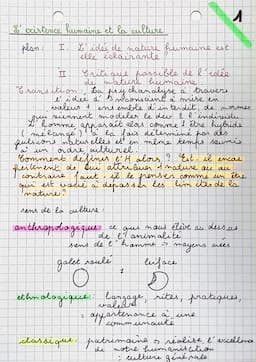 1
L'existence humaine et la culture
plan : I. L'idée de nature humaine est
elle éclairante
II Critique possible de l'idée
de nature humaine.
Transition. La psychanalyse à travers
l'idée d' inconscient a mise en
valeur 1 ensemble d'interdit de normes
qui viennent modeler le devr de l'individu.
L'homme apparaît alors comme 1 être hybride
(mélange) à la fois déterminé par des
pulsions naturelles et en même temps soumis
à un ordre culturel.
Comment définir l'H alors ? Est-il encore
pertinent de lui attribuer 1 nature ou au
contraire faut-il le penser comme un être
qui est voué à dépasser les limites de la
nature?
sens de la culture :
anthropologique : ce que nous élève au dessus
de l'animalité
sens de l'homme → moyens usées
galet roulé biface
ethnologique : langage, rites, pratiques,
valeurs
= appartenance à une
communauté
classique : patrimoine → réalise l'excellence
de notre humanisation
: culture générale